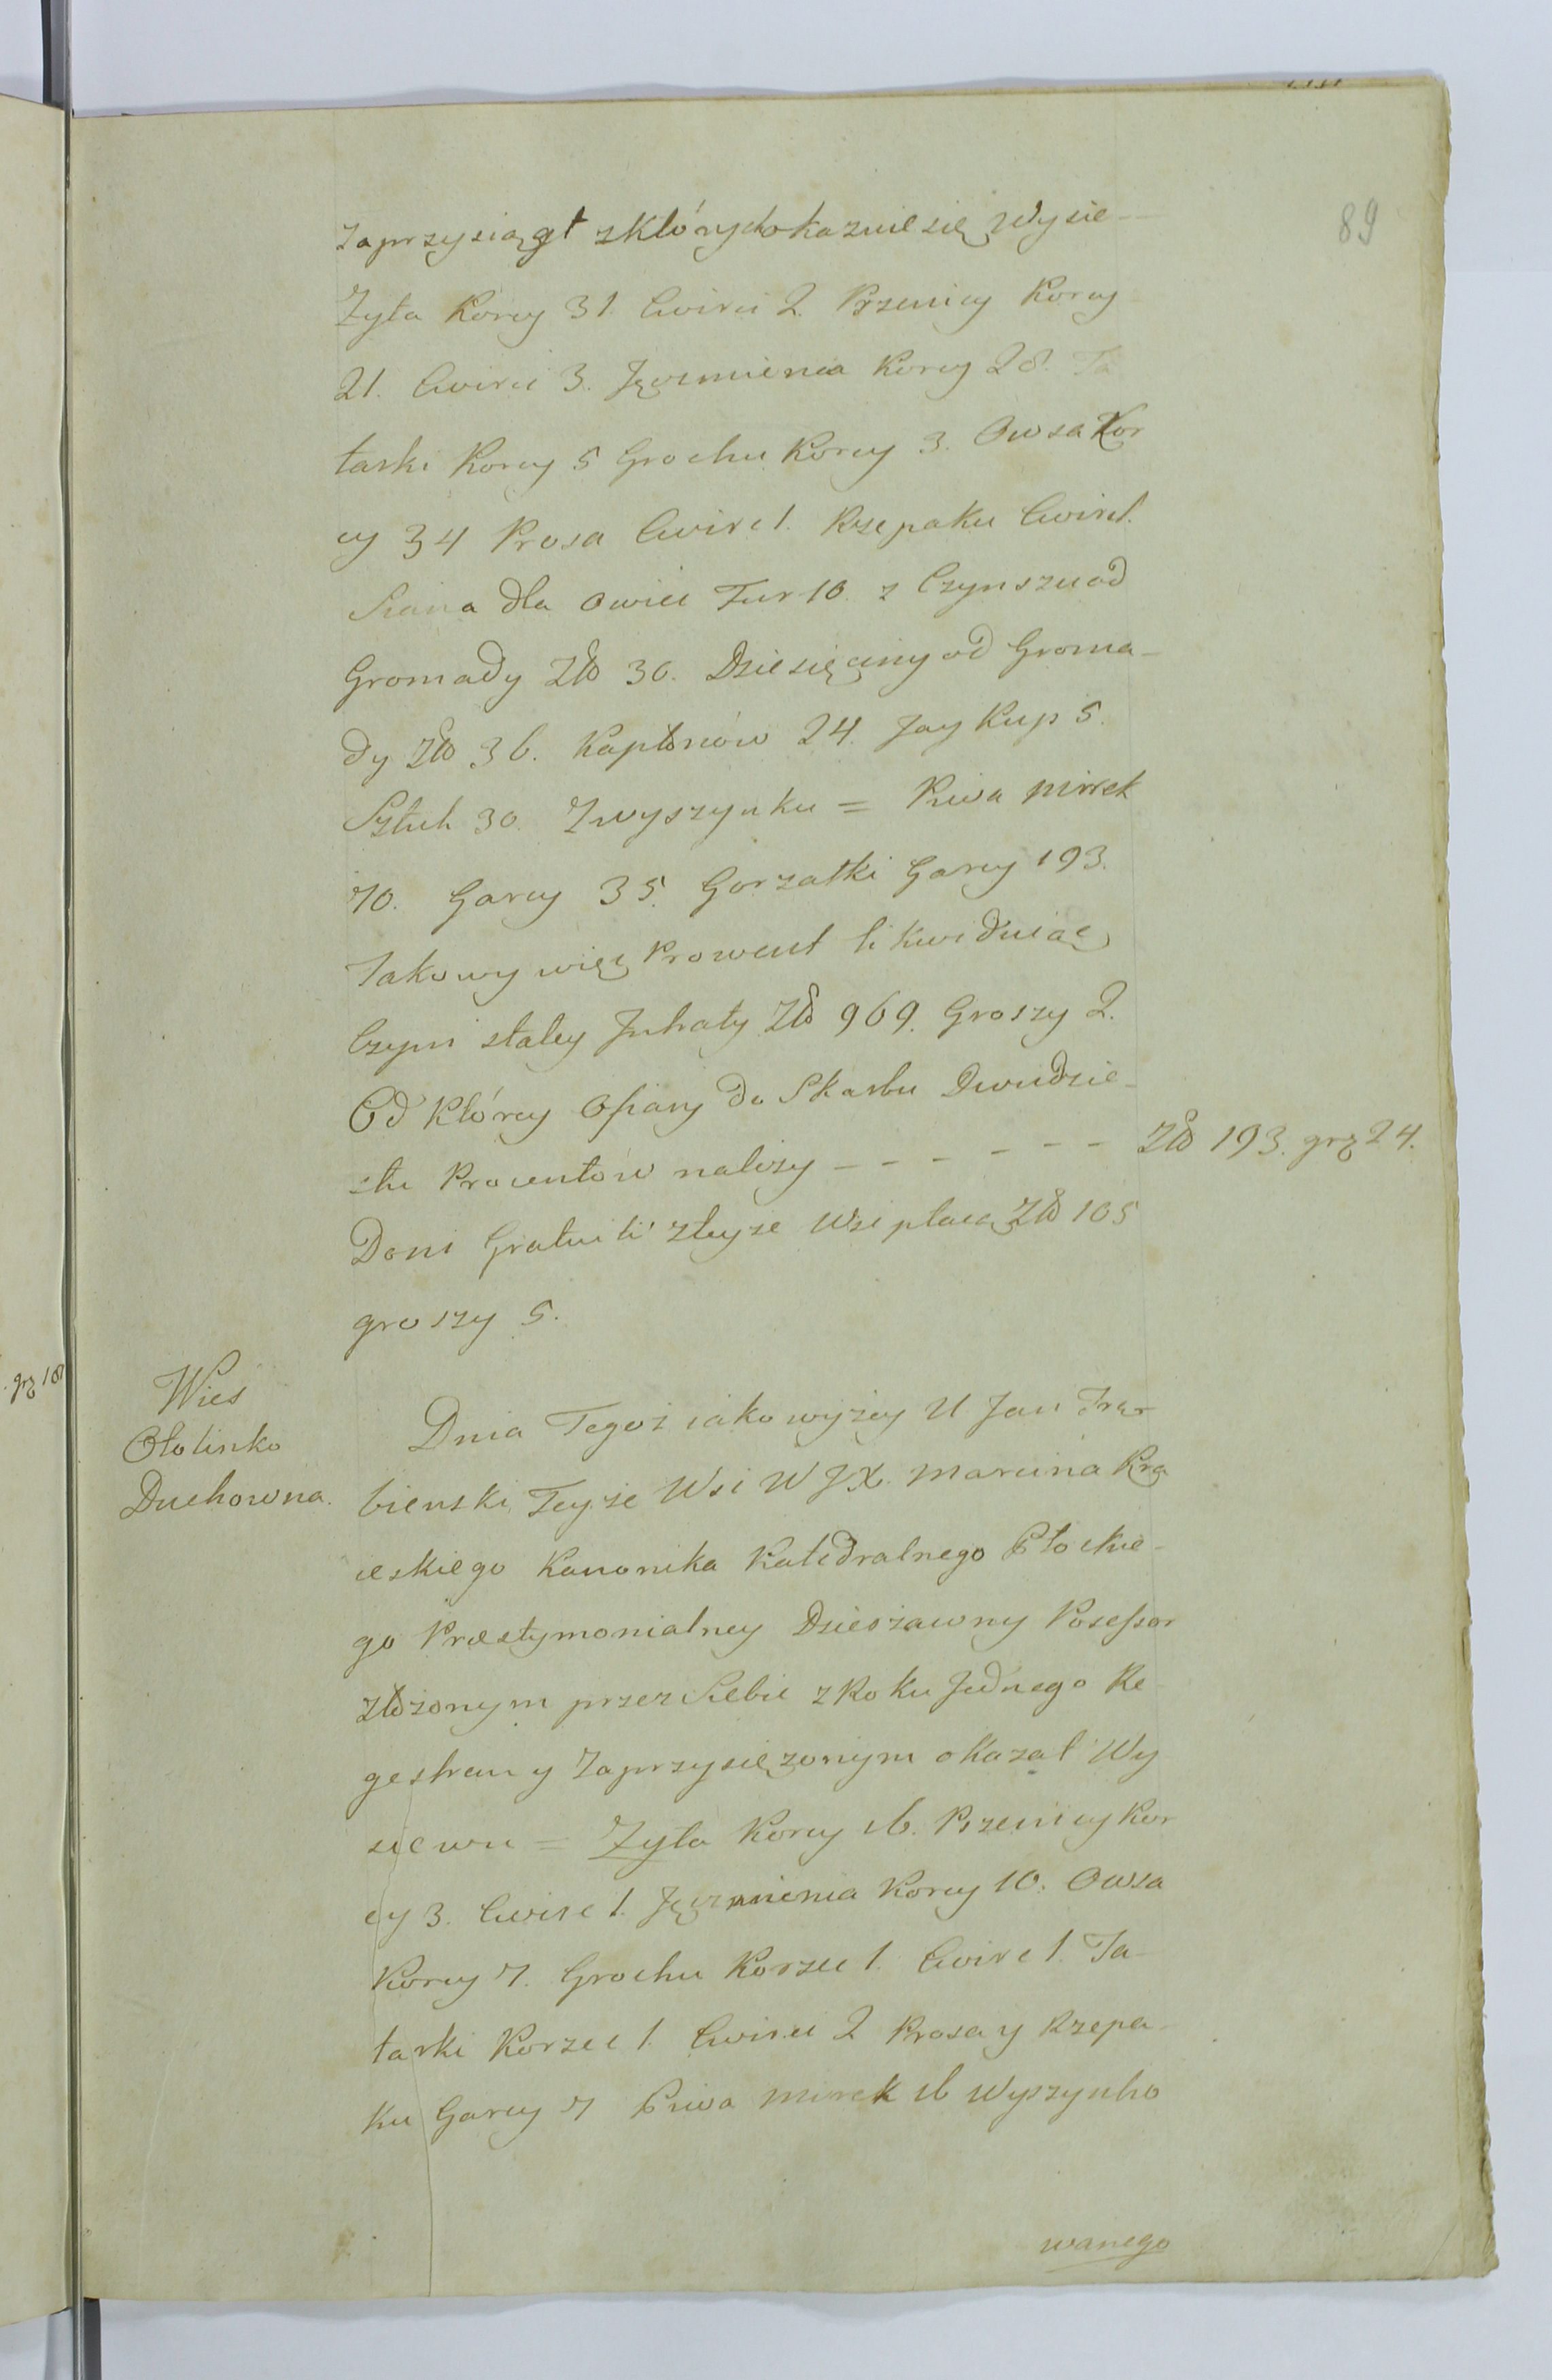 89
zaprzysiągł z których okaznie się Wysie-
Zyta Korcy 31. Cwirci 2. Przenicy Korcy
21. Cwirci 3. Jęczmienia Korcy 28. Ta
tarki Korcy 5 Grochu Korcy 3. Owsa Kor
cy 34 Prosa Cwirc 1. Rzepaku Cwirc 1.
Siana dla Owiec Fur 10. z Czynszu od
Gromady Zło 30. Dziesięciny od Groma-
dy Zło 36. Kapłonów 24. Jay Kup 5.
Sztuk 30. Zwyszynku = Piwa mirek
70. Garcy 35. Gorzałki Garcy 193.
Takowy więc Prowent likwiduiąc
Czyni stałey Jntraty Zło 969. Groszy 2.
Od Którey Ofiary do Skarbu Dwudzie-
stu Procentów należy - - - - - - Zło 193. grz 24.
Doni Gratuiti ztejże Wsi płacą Zło 105
groszy 5.
Wies
Ołolinko
Duchowna.
Dnia Tegoż iako wyżey U Jan Trar
bienski Teyże Wsi W JX. Marcina Kra
ieskiego Kanonika Katedralnego Płockie-
go Præstymonialney Dzierżawny Posessor
złożonym przez Siebie z Roku Jednego Re
gestrem y Zaprzysiężonym okazał Wy
siewu = Zyta Korcy 16. Pszenicy Kor
cy 3. Cwirc 1. Jęczmienia Korcy 10. Owsa
Korcy 7. Grochu Korzec 1. Cwirc 1. Ta-
tarki Korzec 1. Cwirci 2 Prosa y Rzepa-
ku Garcy 7 Piwa mirek 16 Wyszynko
wanego
grz 18